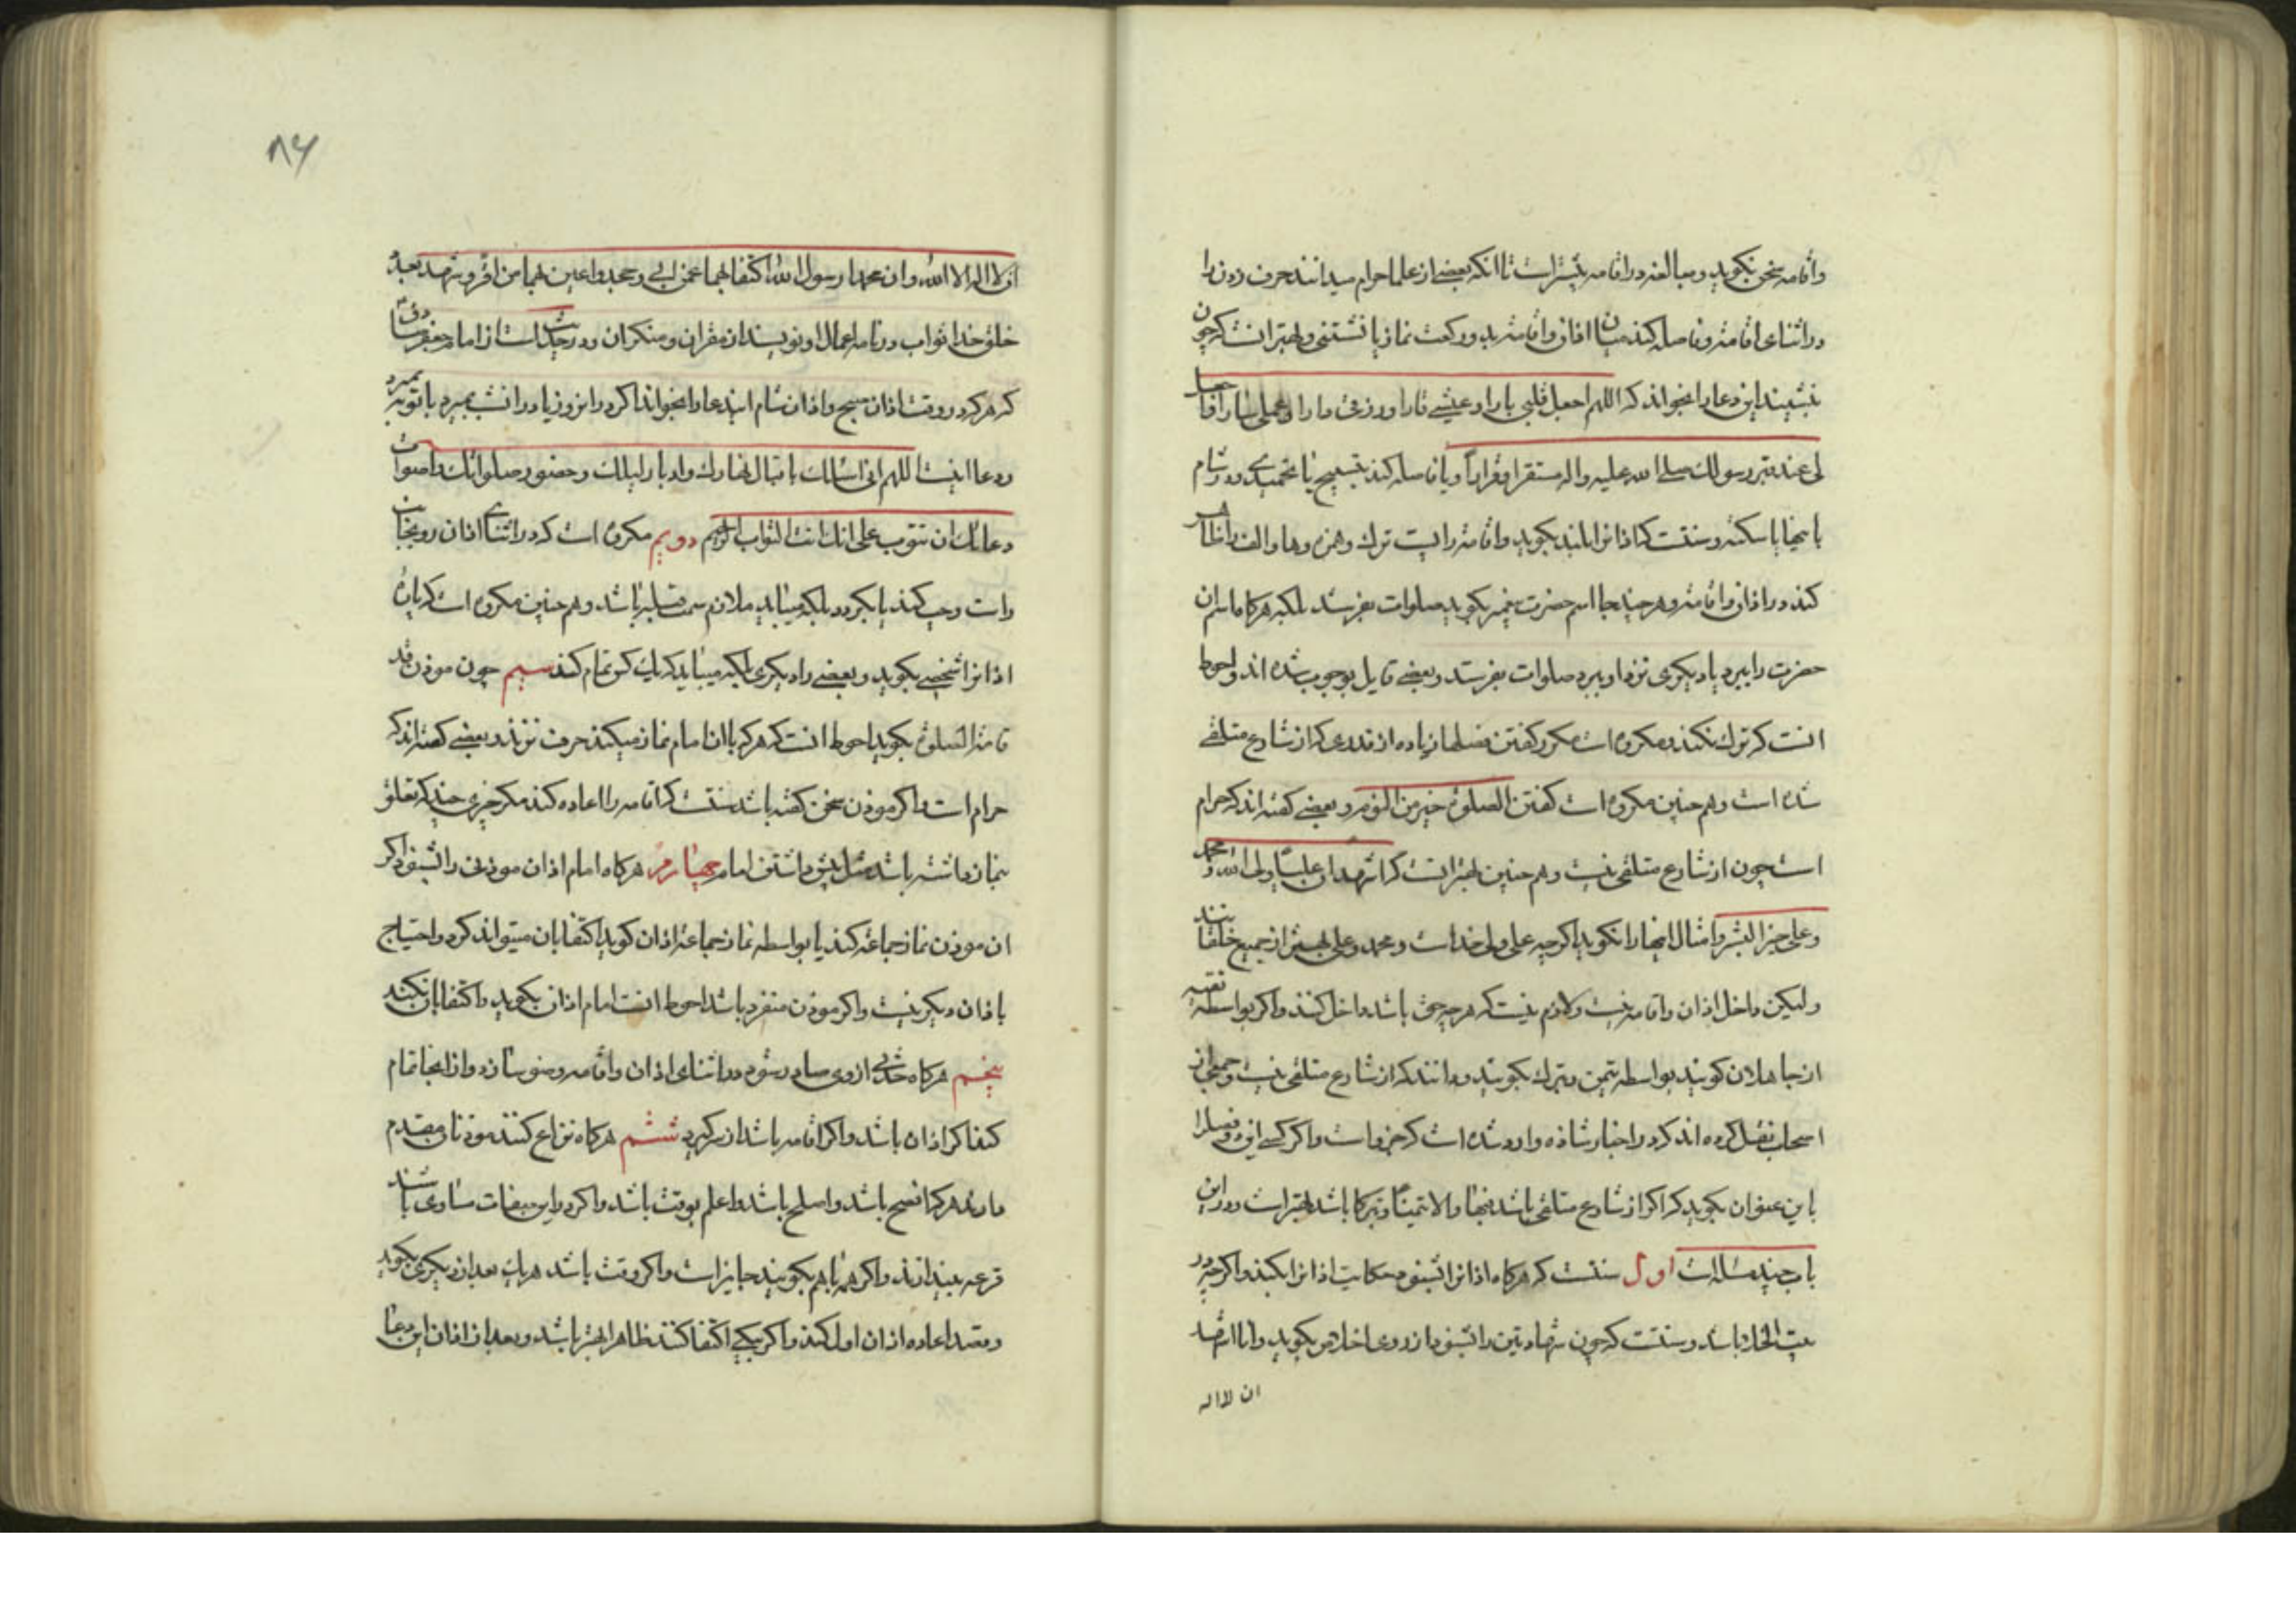 واقامه سخن نکوید ومبالغه در اقامه بیشتر است تا انکه بعضی از علما حرام میدانند حرف زدن را
در اثنای اقامة وفاصله کند میان اذان واقامة بدو رکعت نماز یا نشستنی وبهتر انست که چون
بنشیند این دعا را بخواند که اللهم اجعل قلبی بارا وعیشی قارا ورزقی دارا وعملی سارا واجعل
لی عند قبر رسولك صلی الله علیه واله مستقرا وقرارا ویا فاصله کند بتسبیح یا تحمیدی ودر شام
یا بسکته وسنتست که اذانرا بلند بکوید واقامة را پست ترك وهمزه وها والف را ظاهر
کند در اذان واقامة وهر چند جا اسم حضرت پیغمبر بکوید صلوات بفرستد بلکه هرکاه اسم ان
حضرت را ببرد یا دیکری نزد او ببرد صلوات بفرستد وبعضی قایل بوجوب شده اند واحوط
انست که ترك نکند ومکروه است مکرر کفتن فصلها زیاده از قدری که از شارع متلقی
شده است وهم چنین مکروه است کفتن الصلوة خیر من النوم وبعضی کفته اند که حرام
است چون از شارع متلقی نیست وهم چنین بهتر انست که اشهد ان علیا ولی الله ومحمد
وعلی خیر البشر وامثال اینها را نکوید اکر چه علی ولی خداست ومحمد وعلی بهترین از جمیع خلقانند
ولیکن داخل اذان واقامه نیست ولازم نیست که هر چه حق باشد داخل کنند واکر بواسطه تقیه
از جاهلان کویند بواسطه تیمن وتبرك بکویند ودانند که از شارع متلقی نیست وجمعی از
اصحاب نقل کرده اند که در اخبار شاذه وارد شده است که جزو است واکر کسی این دو فصل را
باین عنوان بکوید که اکر از شارع متلقی باشد فبها والا تیمنا وتبرکا باشد بهتر است ودر این
باب چند مسأله است اول سنتست که هرکاه اذانرا بشنود حکایت اذانرا بکند واکر چه در
بیت الخلا باشد وسنتست که چون شهادتین را بشنود از روی اخلاص بکوید وانا اشهد
ان لا اله
۸۶
ان لا اله الا الله وان محمدا رسول الله اکتفی بهما عمن ابی وجحد واعین بهما من اقر وشهد بعدد
خلق خدا ثواب در نامه اعمال او نویسند از مقران ومنکران ودر حدیث است از امام جعفر صادق
که هرکه در وقت اذان صبح واذان شام این دعا را بخواند اکر در ان روز یا در ان شب بمیرد با توبه بمیرد
ودعا اینست اللهم انی اسالك باقبال نهارك وادبار لیلك وحضور صلواتك واصوات
دعاتك ان تتوب علی انك انت التواب الرحیم دویم مکروه است که در اثنای اذان رو بجانب
راست وچپ کند یا بکردد بلکه میباید ملازم سمت قبله باشد وهم چنین مکروه است که پاره
اذانرا شخصی بکوید وبعضی را دیکری بلکه میباید که یك کس تمام کند سیم چون موذن قد
قامة الصلوة بکوید احوط انست که هرکه با ان امام نماز میکند حرف نزند وبعضی کفته اند که
حرام است واکر موذن سخن کفته باشد سنتست که اقامه را اعاده کند مکر چیزی چند که تعلق
بنماز داشته باشد مثل پیش داشتن امام چهارم هرکاه امام اذان موذنی را بشنود اکر
ان موذن نماز جماعة کند یا بواسطه نماز جماعة اذان کوید اکتفا بان میتواند کرد واحتیاج
باذان دیکر نیست واکر موذن منفرد باشد احوط انست امام اذان بکوید واکتفا بان نکند
پنجم هرکاه حدثی از وی صادر شود در اثنای اذان واقامه وضو سازد واز انجا تمام
کند اکر اذان باشد واکر اقامه باشد از سر کیرد ششم هرکاه نزاع کنند موذنان مقدم
دارند هرکه افصح باشد واصلح باشد واعلم بوقت باشد واکر در این صفات مساوی باشند
قرعه بیندازند واکر همه باهم بکویند جایز است واکر وقت باشد هر یك بعد از دیکری بکوید
وقصد اعاده اذان اول کند واکر بیکی اکتفا کنند ظاهرا بهتر باشد وبعد از اذان این دعا